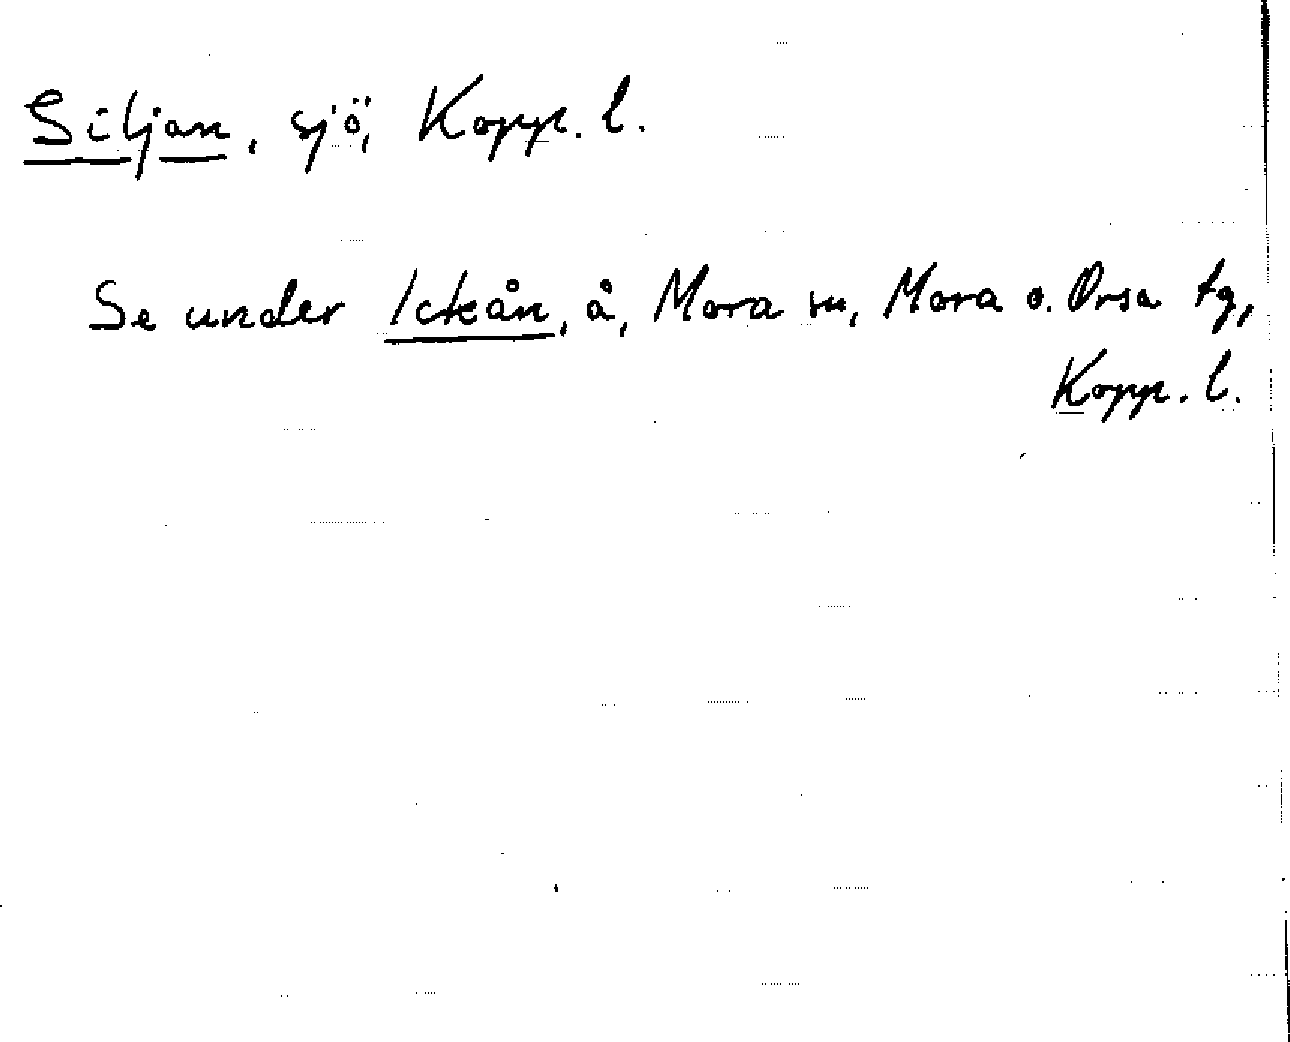 Siljan, sjö, Kopp. l.
Se under Ickån, å, Mora sn, Mora o. Orsa tg,
Kopp. l.